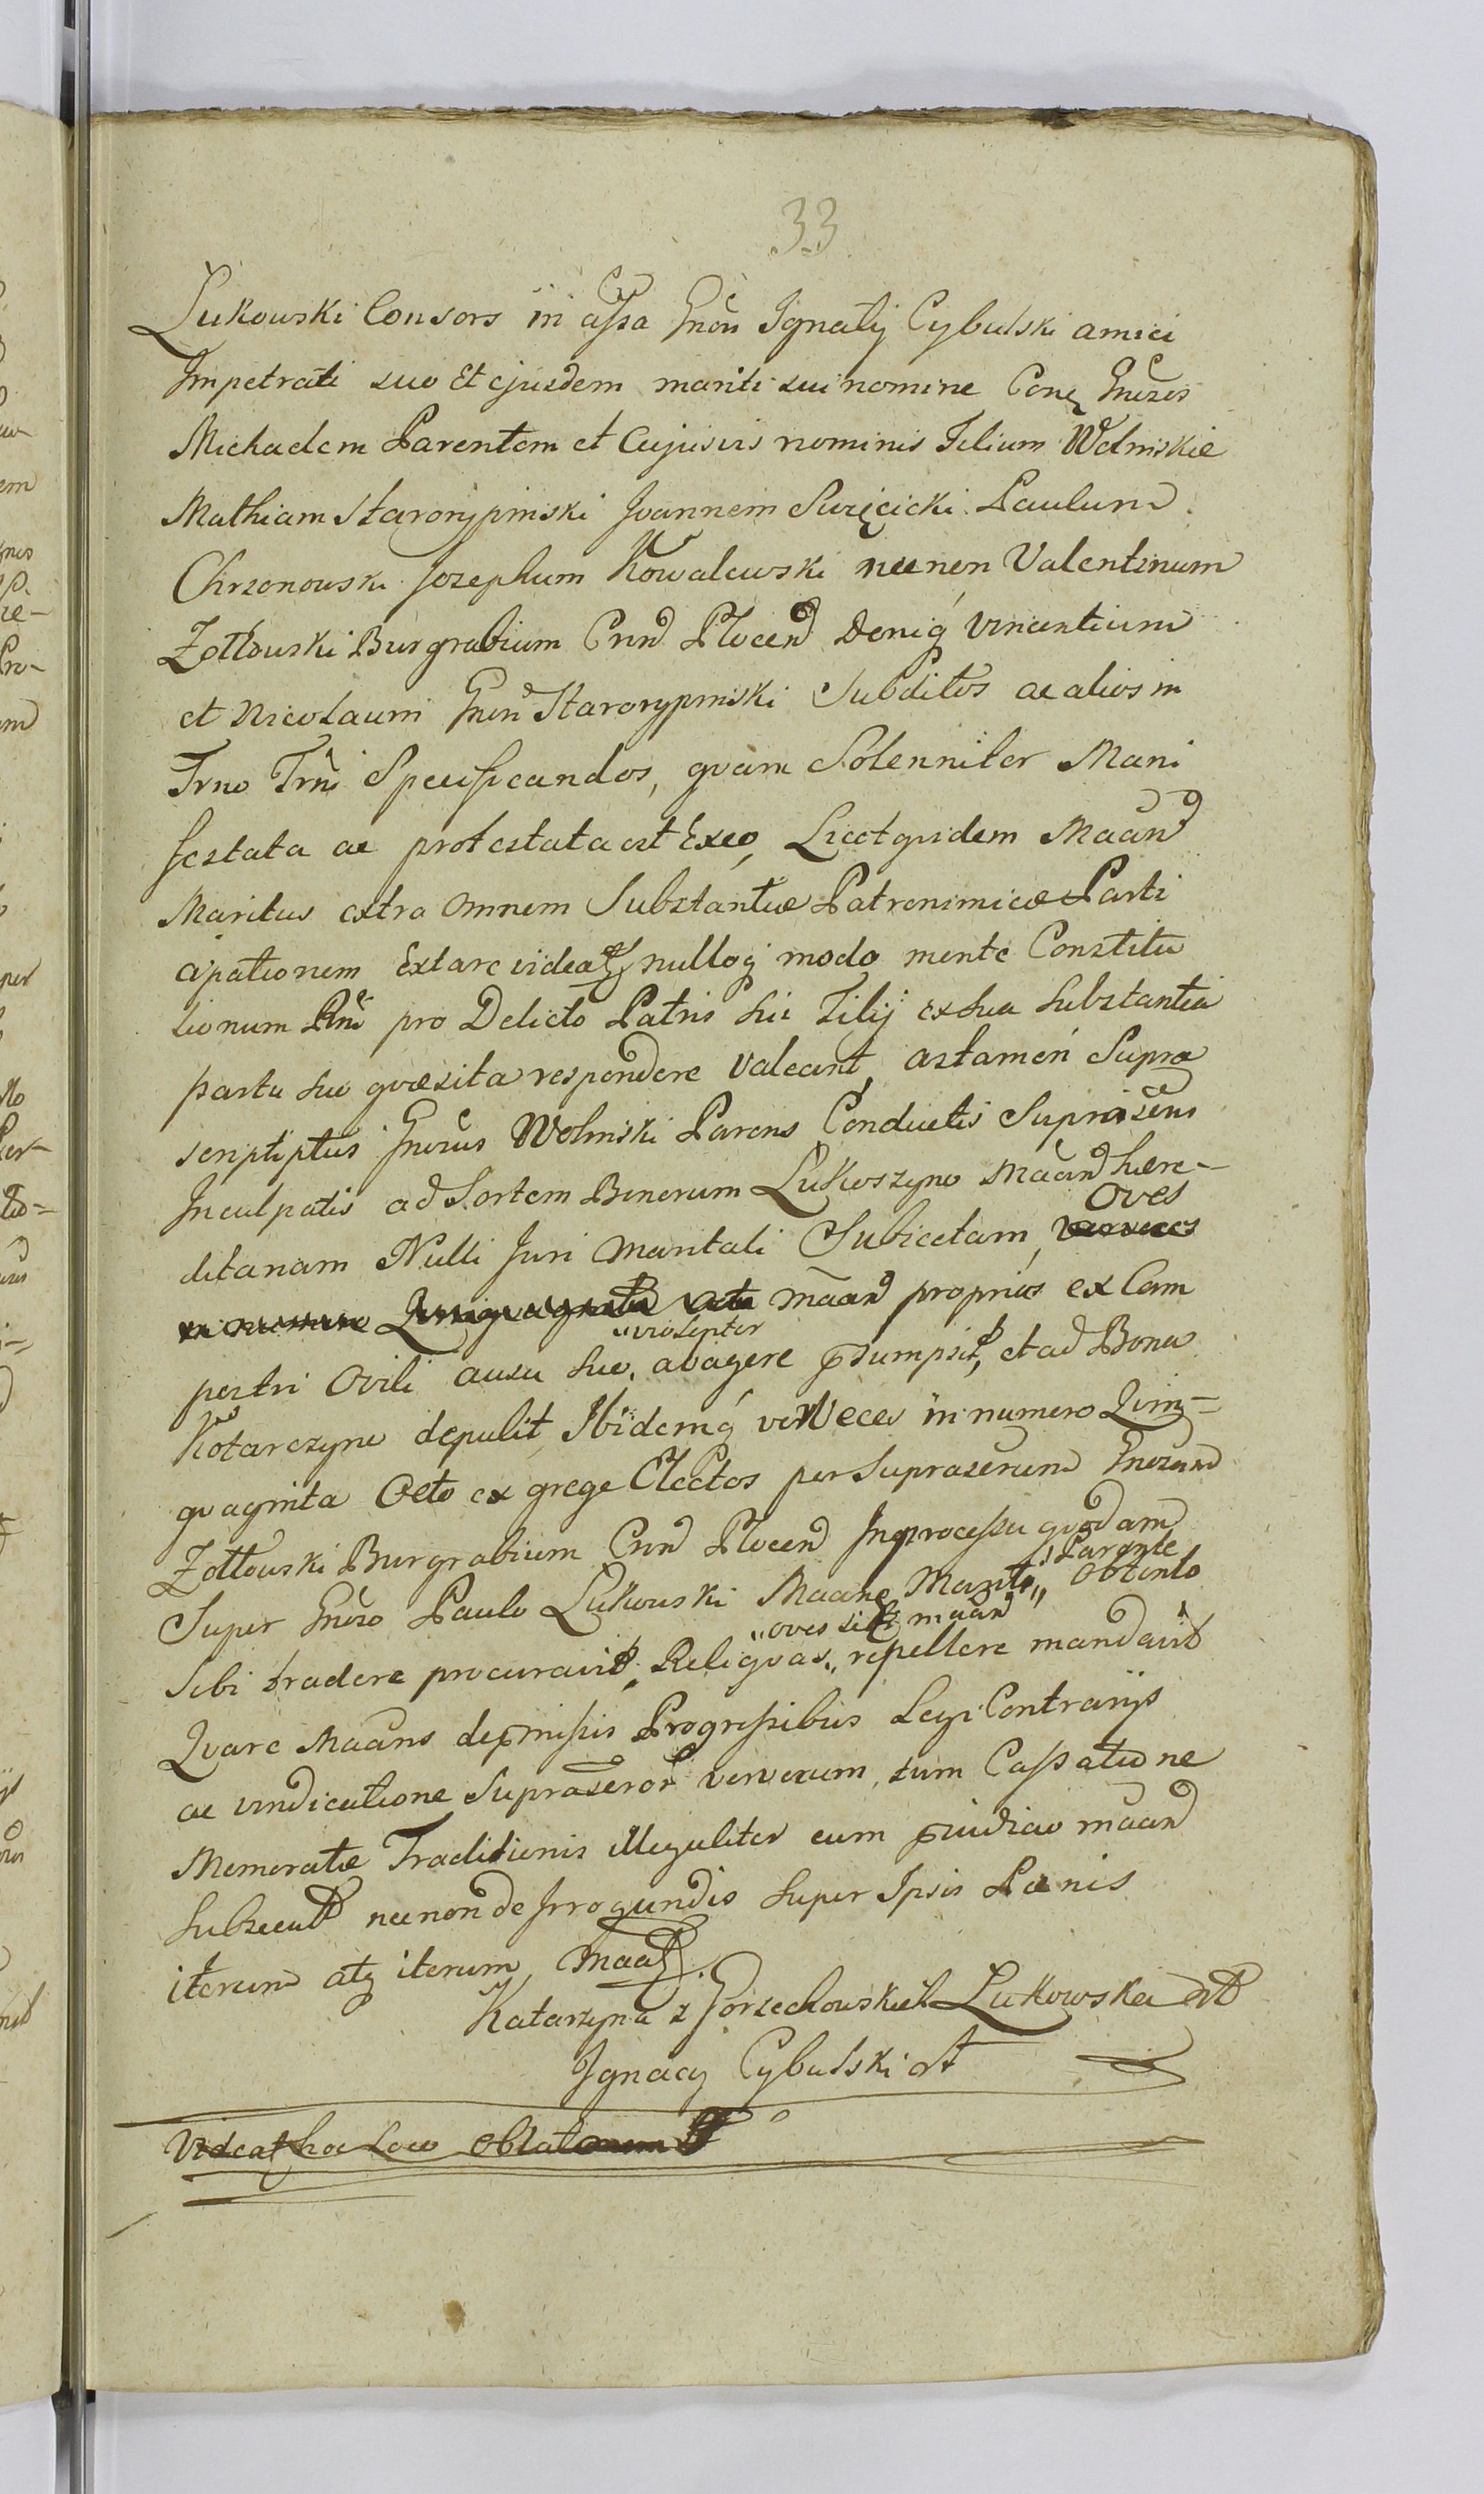 33
Lukowski Consors in assa Gnon Ignatij Cybulski amici
Impetrati suo Et ejusdem mariti sui nomine Conq Gnosos
Michaelem Parentem et Cujusvis nominis Filium Wolinskie
Mathiam Starorypinski Joannem Swięcicki Paulum
Chrzonowski Josephum Kowalewski necnon Valentinum
Zołtowski Burgrabium Crnd Plocen Deniq Vincentium
et Nicolaum Gnon Starorypinski Subditos ac alios in
Trno Trni Specificandos, qvam Solenniter Mani
festata ac protestata est Exeo, Licet qvidem Maan
Maritus extra omnem Substantiæ Patronimicæ Parti
cipationem Extare videat nulloq modo mente Constitu
tionum Rni pro Delicto Patris sui Filij ex sua Substantia
partu suo qvæsita respondere valeant, astamen Supra
scriptiptus Gnosus Wolinski Parens Conductis Suprascrus
Inculpatis ad Sortem Bonorum Lukoszyno Maand hære-
ditariam Nulli Juri maritali Subjectam, oves
maand proprias ex Cam
pestri Ovili ausu suo, violenter abagere psumpsit, et ad Bona
Kotarczyno depulit Ibidemq verveces in numero Qvin-
qvaginta Octo ex grege Electos per Suprascrum Gnosum
Zołtowski Burgrabium Crnd Plocen In processu qvodam
Super Gnoso Paulo Lukowski Maane Marito Parente Obtento
Sibi tradere procuravit, Reliqvas oves maan repellere mandavit
Qvare Maans de pmissis Progressibus Legi Contrarijs
ac vindicatione Suprascror vervecum, tum Cassatione
Memoratæ Traditionis illegaliter cum pjudicio maan
Subsecut necnon de Irrogandis super Ipsis Pænis
iterum atq iterum Maat.
Katarzyna z Gorzechowskich Lukowska
Ignacy Cybulski
Videat hoc Loco Oblatonem